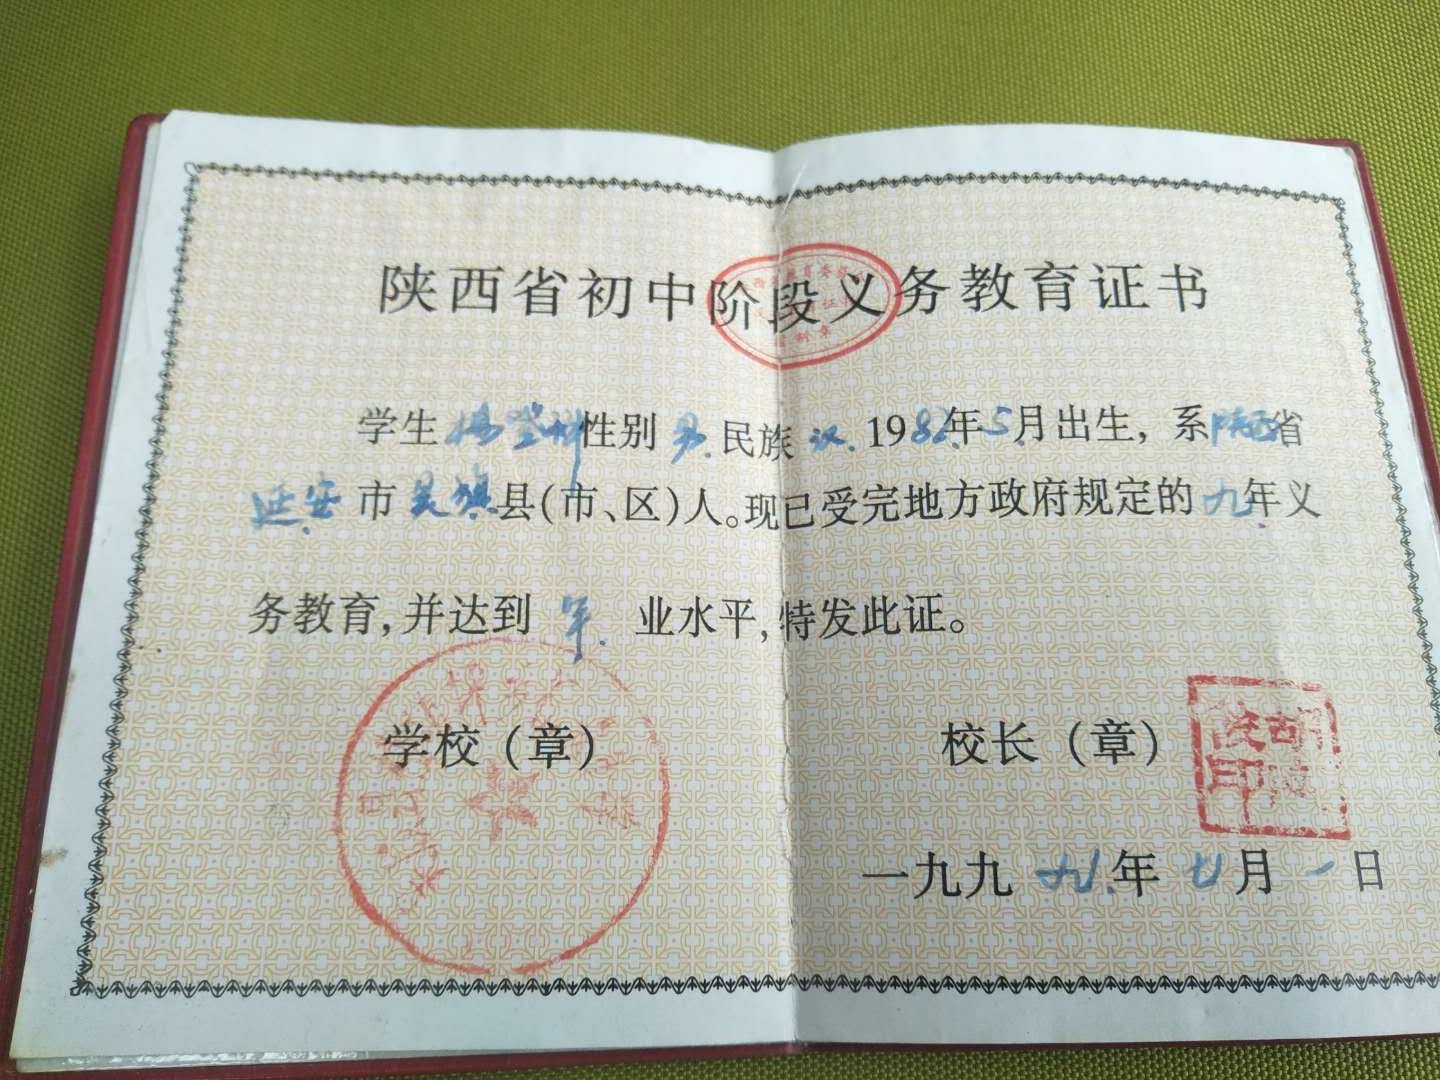 陕西省初中阶段义务教育证书
学生杨登科性别男.民族汉.1982年5月出生,系陕西省
延安市吴旗县(市、区)人。现已受完地方政府规定的九年义
务教育,并达到毕业水平,特发此证。
学校(章) 校长(章)
一九九九.年七月一日